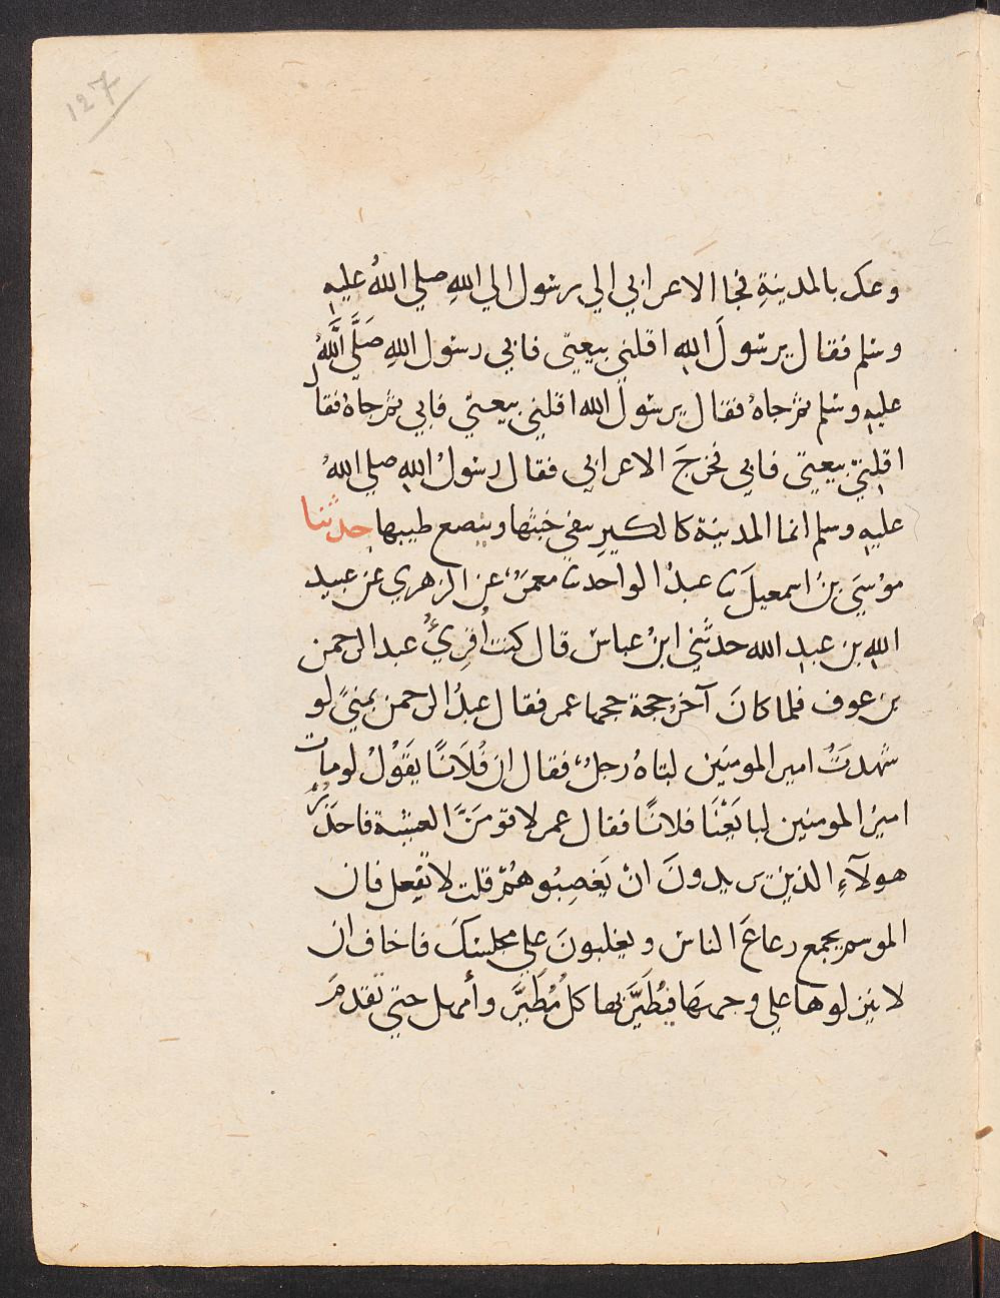 127
وعك بالمدينةِ فجا الاعرابي الي رسول الي اللهِ صلي اللهُ عليهِ
وسلم فقال يرسولَ اللهِ اقلني بيعتي فابي رسول اللهِ صَلَّى اللَّهُ
عليهِ وسلم ثم جاهُ فقال يرسولَ الله اقلني بيعتي فابي ثم جاهُ فقال
اقلِنيْ بيعتي فابي فخرجَ الاعرابي فقال رسولُ اللهِ صلي اللهُ
عليهِ وسلم انما المدينة كالكيرِ ينفي خبثها وينصع طيبها حدثنا
موُسَي بنُ اسمعيلَ ثنا عبدُ الواحد ثنا معمرٌ عن الزهري عن عبيد
اللهِ بن عبدِ الله حدثني ابنُ عباس قال كنت اُقرِيُ عبد الرحمن
بن عوف فلما كانَ آخرُ حجة حجها عمر فقال عبدُ الرحمن بمنيً لو
شهدتَ امير المومنين اتاهُ رجلٌ فقال ان فُلَانًا يَقَوُلُ لو مات
اميرُ المومنين لبايَعْنَا فلانًا فقال عمر لاقومَنَّ العشية فاحذرُ
هولآءِ الذين يريدونَ انْ يَغصِبُوهُمْ قلت لا تفعل فان
الموسم يجمع رعاعَ الناس ويغلبونَ علي مجلسكَ فاخاف ان
لا ينزلوها علي وجهها فيُطَيَّرَ بها كلُ مُطَيَّر وأمهل حتي تقدمَ